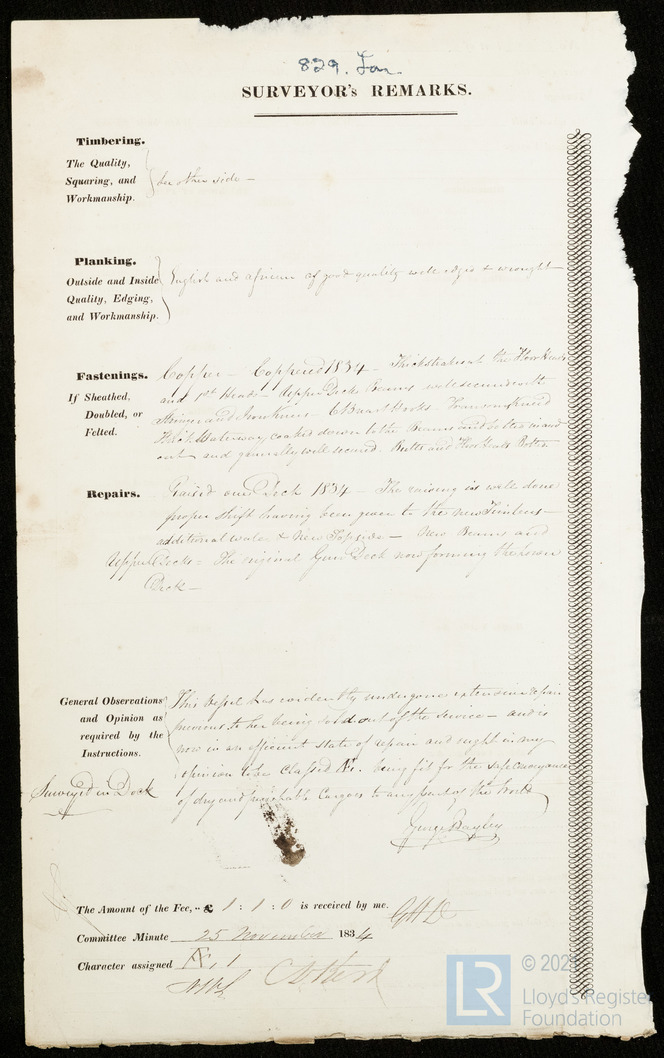 829. Lon.
SURVEYOR's REMARKS.
Timbering.
The Quality,
Squaring, and
Workmanship.
See other side —
Planking.
Outside and Inside
Quality, Edging,
and Workmanship.
English and African of good quality well edged & wrought
Fastenings.
If Sheathed,
Doubled, or
Felted.
Copper — Coppered 1834 — Thickstrakes at the Floor Heads
and 1st Heads — Upper Deck Beams well secured with
and Iron Knees — 6 Breast Hooks Transoms Kneed
Thick Waterway coaked down to the Beams and bolted in and
out — and generally well secured. Butts and
Repairs.
Raised one Deck 1834 — The raising is well done
proper shift having been given to the new Timbers —
additional wales & New Topside — New Beams and
Upper Decks = The original Gun Deck now forming the Lower
Deck —
General Observations
and Opinion as
required by the
Instructions.
This Vessel has evidently undergone extensive repair
previous to her being sold out of the service — and is
now in an efficient state of repair and ought in my
opinion to be Classed Æ1. being fit for the safe conveyance
of dry and perishable Cargoes to any part of the World
Surveyed in Dock
George Bayley
The Amount of the Fee, -- £ 1 : 1 : 0 is received by me.
Committee Minute 25 November 1834
Character assigned Æ, 1
© 202
LR
Lloyd's Register
Foundation